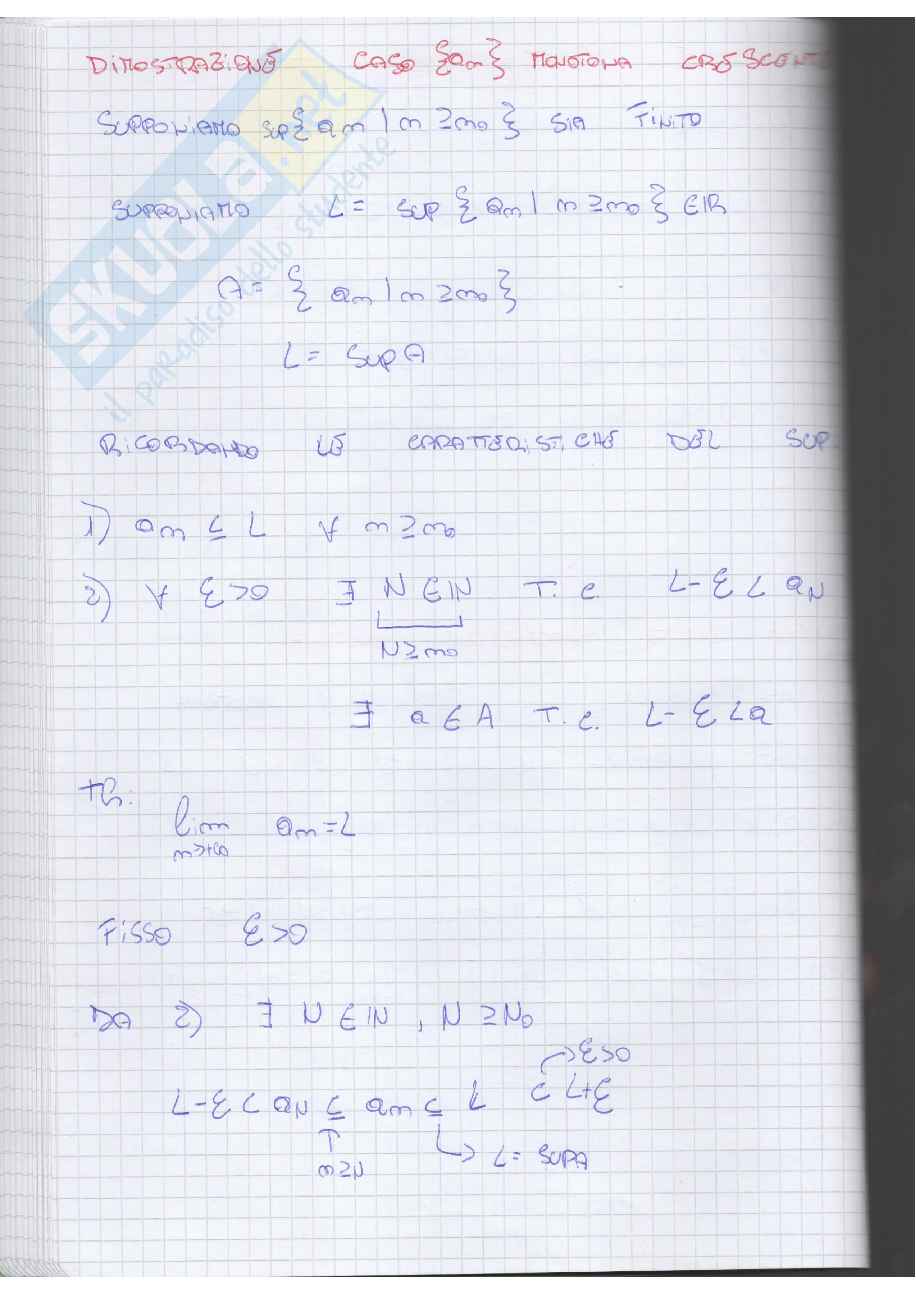 DIMOSTRAZIONE CASO {an} MONOTONA CRESCENT
SUPPONIAMO sup{ an | n ≥ n0 } SIA FINITO
SUPPONIAMO L = sup { an | n ≥ n0 } ∈ IR
A = { an | n ≥ n0 }
L = sup A
RICORDANDO LE CARATTERISTICHE DEL SUP
1) an ≤ L ∀ n ≥ n0
2) ∀ ε > 0 ∃ N ∈ IN T.c. L-ε < aN
N ≥ n0
∃ a ∈ A T.c. L-ε < a
th:
lim an = L
n→+∞
FISSO ε > 0
DA 2) ∃ N ∈ IN , N ≥ N0
→ ε>0
L-ε < aN ≤ an ≤ L < L+ε
↑
n ≥ N
↳ L = SUPA
SKUOLA.net
il paradiso dello studente